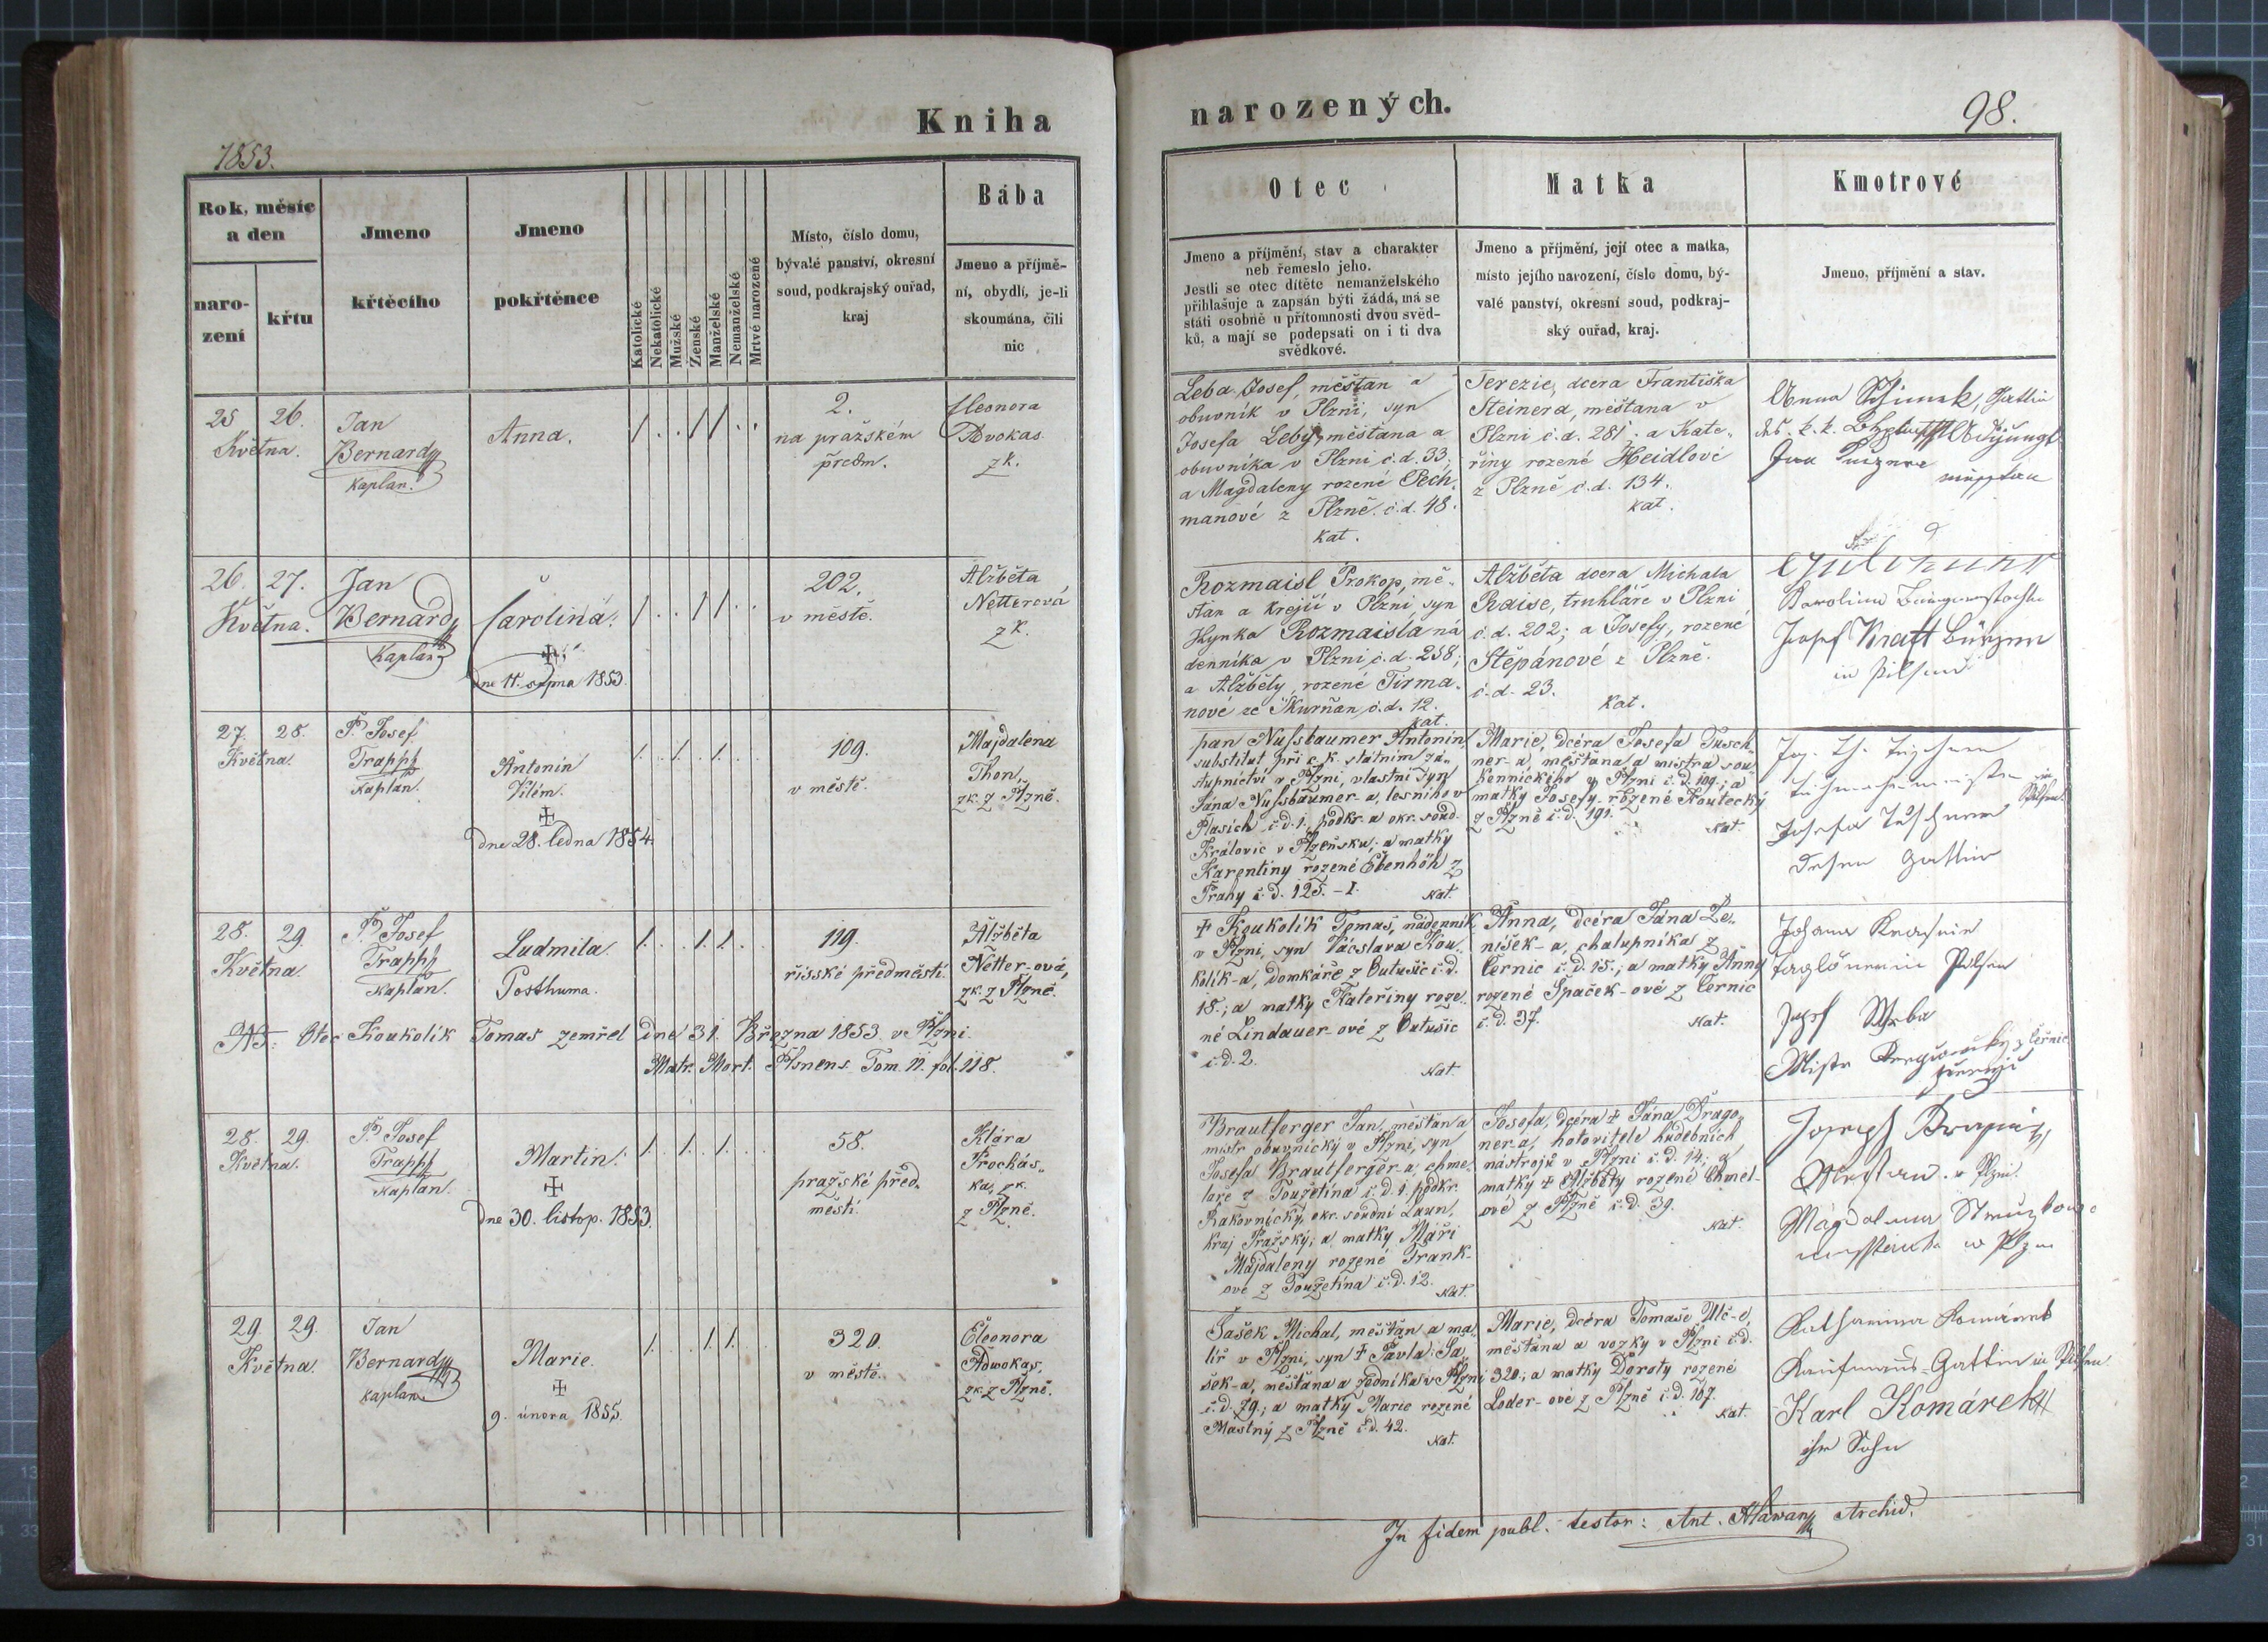 Kniha
narozených.
98.
1853.
Rok, měsíc
a den
naro-
zení
křtu
Jmeno
křtěcího
Jmeno
pokřtěnce
Katolické
Nekatolické
Mužské
Ženské
Manželské
Nemanželské
Mrtvé narozené
Místo, číslo domu,
bývalé panství, okresní
soud, podkrajský ouřad,
kraj
Bába
Jmeno a příjmě-
ní, obydlí, je-li
skoumána, čili
nic
Otec
Jmeno a příjmění, stav a charakter
neb řemeslo jeho.
Jestli se otec dítěte nemanželského
přihlašuje a zapsán býti žádá, má se
státi osobně u přítomnosti dvou svěd-
ků, a mají se podepsati on i ti dva
svědkové.
Matka
Jmeno a příjmění, její otec a matka,
místo jejího narození, číslo domu, bý-
valé panství, okresní soud, podkraj-
ský ouřad, kraj.
Kmotrové
Jmeno, příjmění a stav.
25 26.
Května.
Jan
Bernardy
Kaplan.
Anna.
2.
na pražském
předm.
Eleonora
Advokas
zk.
Leba Josef, měštan a
obuvník v Plzni, syn
Josefa Leby, měštana a
obuvníka v Plzni č.d. 33;
a Magdaleny rozené Pech-
manové z Plzně č.d. 48.
kat.
Terezie, dcera Františka
Steinera, měštana v
Plzni č.d. 281; a Kate-
řiny rozené Heidlové
z Plzně č.d. 134.
kat.
Anna Gattin
des k. k.
26. 27.
Května.
Jan
Bernardy
Kaplan
Carolina.
✝
dne 11. srpna 1853.
202.
v městě.
Alžběta
Netterová
zk.
Rozmaisl Prokop, mě-
štan a krejčí v Plzni, syn
Hynka Rozmaisla ná
denníka v Plzni č.d. 258;
a Alžběty, rozené Tirma-
nové ze Škurňan č.d. 12.
kat.
Alžběta dcera Michala
Raise, truhláře v Plzni
č.d. 202; a Josefy, rozené
Štěpánové z Plzně.
č.d. 23.
kat.
Karolina
Josef Kraft Bürger
in Pilsen
27. 28.
Května.
P. Josef
Trapp
Kaplan.
Antonín
Vilém.
✝
dne 28. ledna 1854.
109.
v městě.
Majdalena
Thon,
zk. z Plzně.
pan Nussbaumer Antonín,
substitut při c. k. státním zá-
stupnictví v Plzni, vlastní syn
Jána Nussbaumer-a, lesního v
Plasích č.d. 1, podkr. a okr. soud.
Královic v Plzeňsku; a matky
Karentiny rozené Ebenhöh z
Prahy č.d. 125.-I. kat.
Marie, dcéra Josefa Tusch-
ner-a, měštana a mistra sou-
kennického v Plzni č.d. 109.; a
matky Josefy rozené Koutecký
z Plzně č.d. 191. kat.
Josefa Tuschner
dessen Gattin
28. 29.
Května.
P. Josef
Trapp
Kaplan.
Ludmila
Posthuma.
119.
říšské předměstí.
Alžběta
Netter-ová,
zk. z Plzně.
✝ Koukolík Tomaš, nádenník
v Plzni, syn Vácslava Kou-
kolík-a, domkáře z Outušic č.d.
18.; a matky Kateřiny roze-
né Lindauer-ové z Outušic
č.d. 2.
kat.
Anna, dcéra Jána Ze-
níšek-a, chalupníka z
Černic č.d. 15.; a matky Anny
rozené Spaček-ové z Černic
č.d. 37. kat.
Johana
in Pilsen
Josef Wrba
Černic
NB: Otec Koukolík Tomas zemřel dne 31. Března 1853 v Plzni.
Matr. Mort. Plsnens. Tom. 11. fol. 118.
28. 29.
Května.
P. Josef
Trapp
Kaplan.
Martin.
✝
dne 30. listop. 1853.
58.
pražské před-
městí.
Klára
Procház-
ka, zk.
z Plzně.
Brautferger Jan, měštan a
mistr obuvnický v Plzni, syn
Josefa Brautferger-a, chme-
laře z Toužetína č.d. 1. podkr.
Rakovnický, okr. soudní Laun,
kraj Pražský; a matky Máři
Majdaleny rozené Frank-
ové z Toužetína č.d. 12. kat.
Josefa, dcéra ✝ Jána Drago-
ner-a, hotovitele hudebních
nástrojů v Plzni č.d. 14.; a
matky ✝ Alžběty rozené Chmel-
ové z Plzně č.d. 39.
kat.
Joseph
v Plzni.
Magdalena
29. 29.
Května.
Jan
Bernardy
Kaplan
Marie.
✝
9. února 1855.
320.
v městě.
Eleonora
Adwokas,
zk. z Plzně.
Šašek Michal, měštan a ma-
líř v Plzni, syn ✝ Pavla Ša-
šek-a, měštana a zedníka v Plzni
č.d. 79.; a matky Marie rozené
Mastný z Plzně č.d. 42.
kat.
Marie, dcéra Tomaše Ulč-e,
měštana a vozky v Plzni č.d.
320.; a matky Doroty rozené
Loder-ové z Plzně č.d. 167.
kat.
Katharina Komárek
Kaufmanns-Gattin in Pilsen
Karl Komárek
ihr Sohn
In fidem publ. testor: Ant. Hlawan Archid.